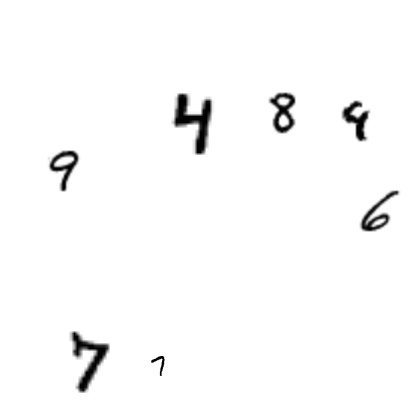 4 8 9
9
6
7 7